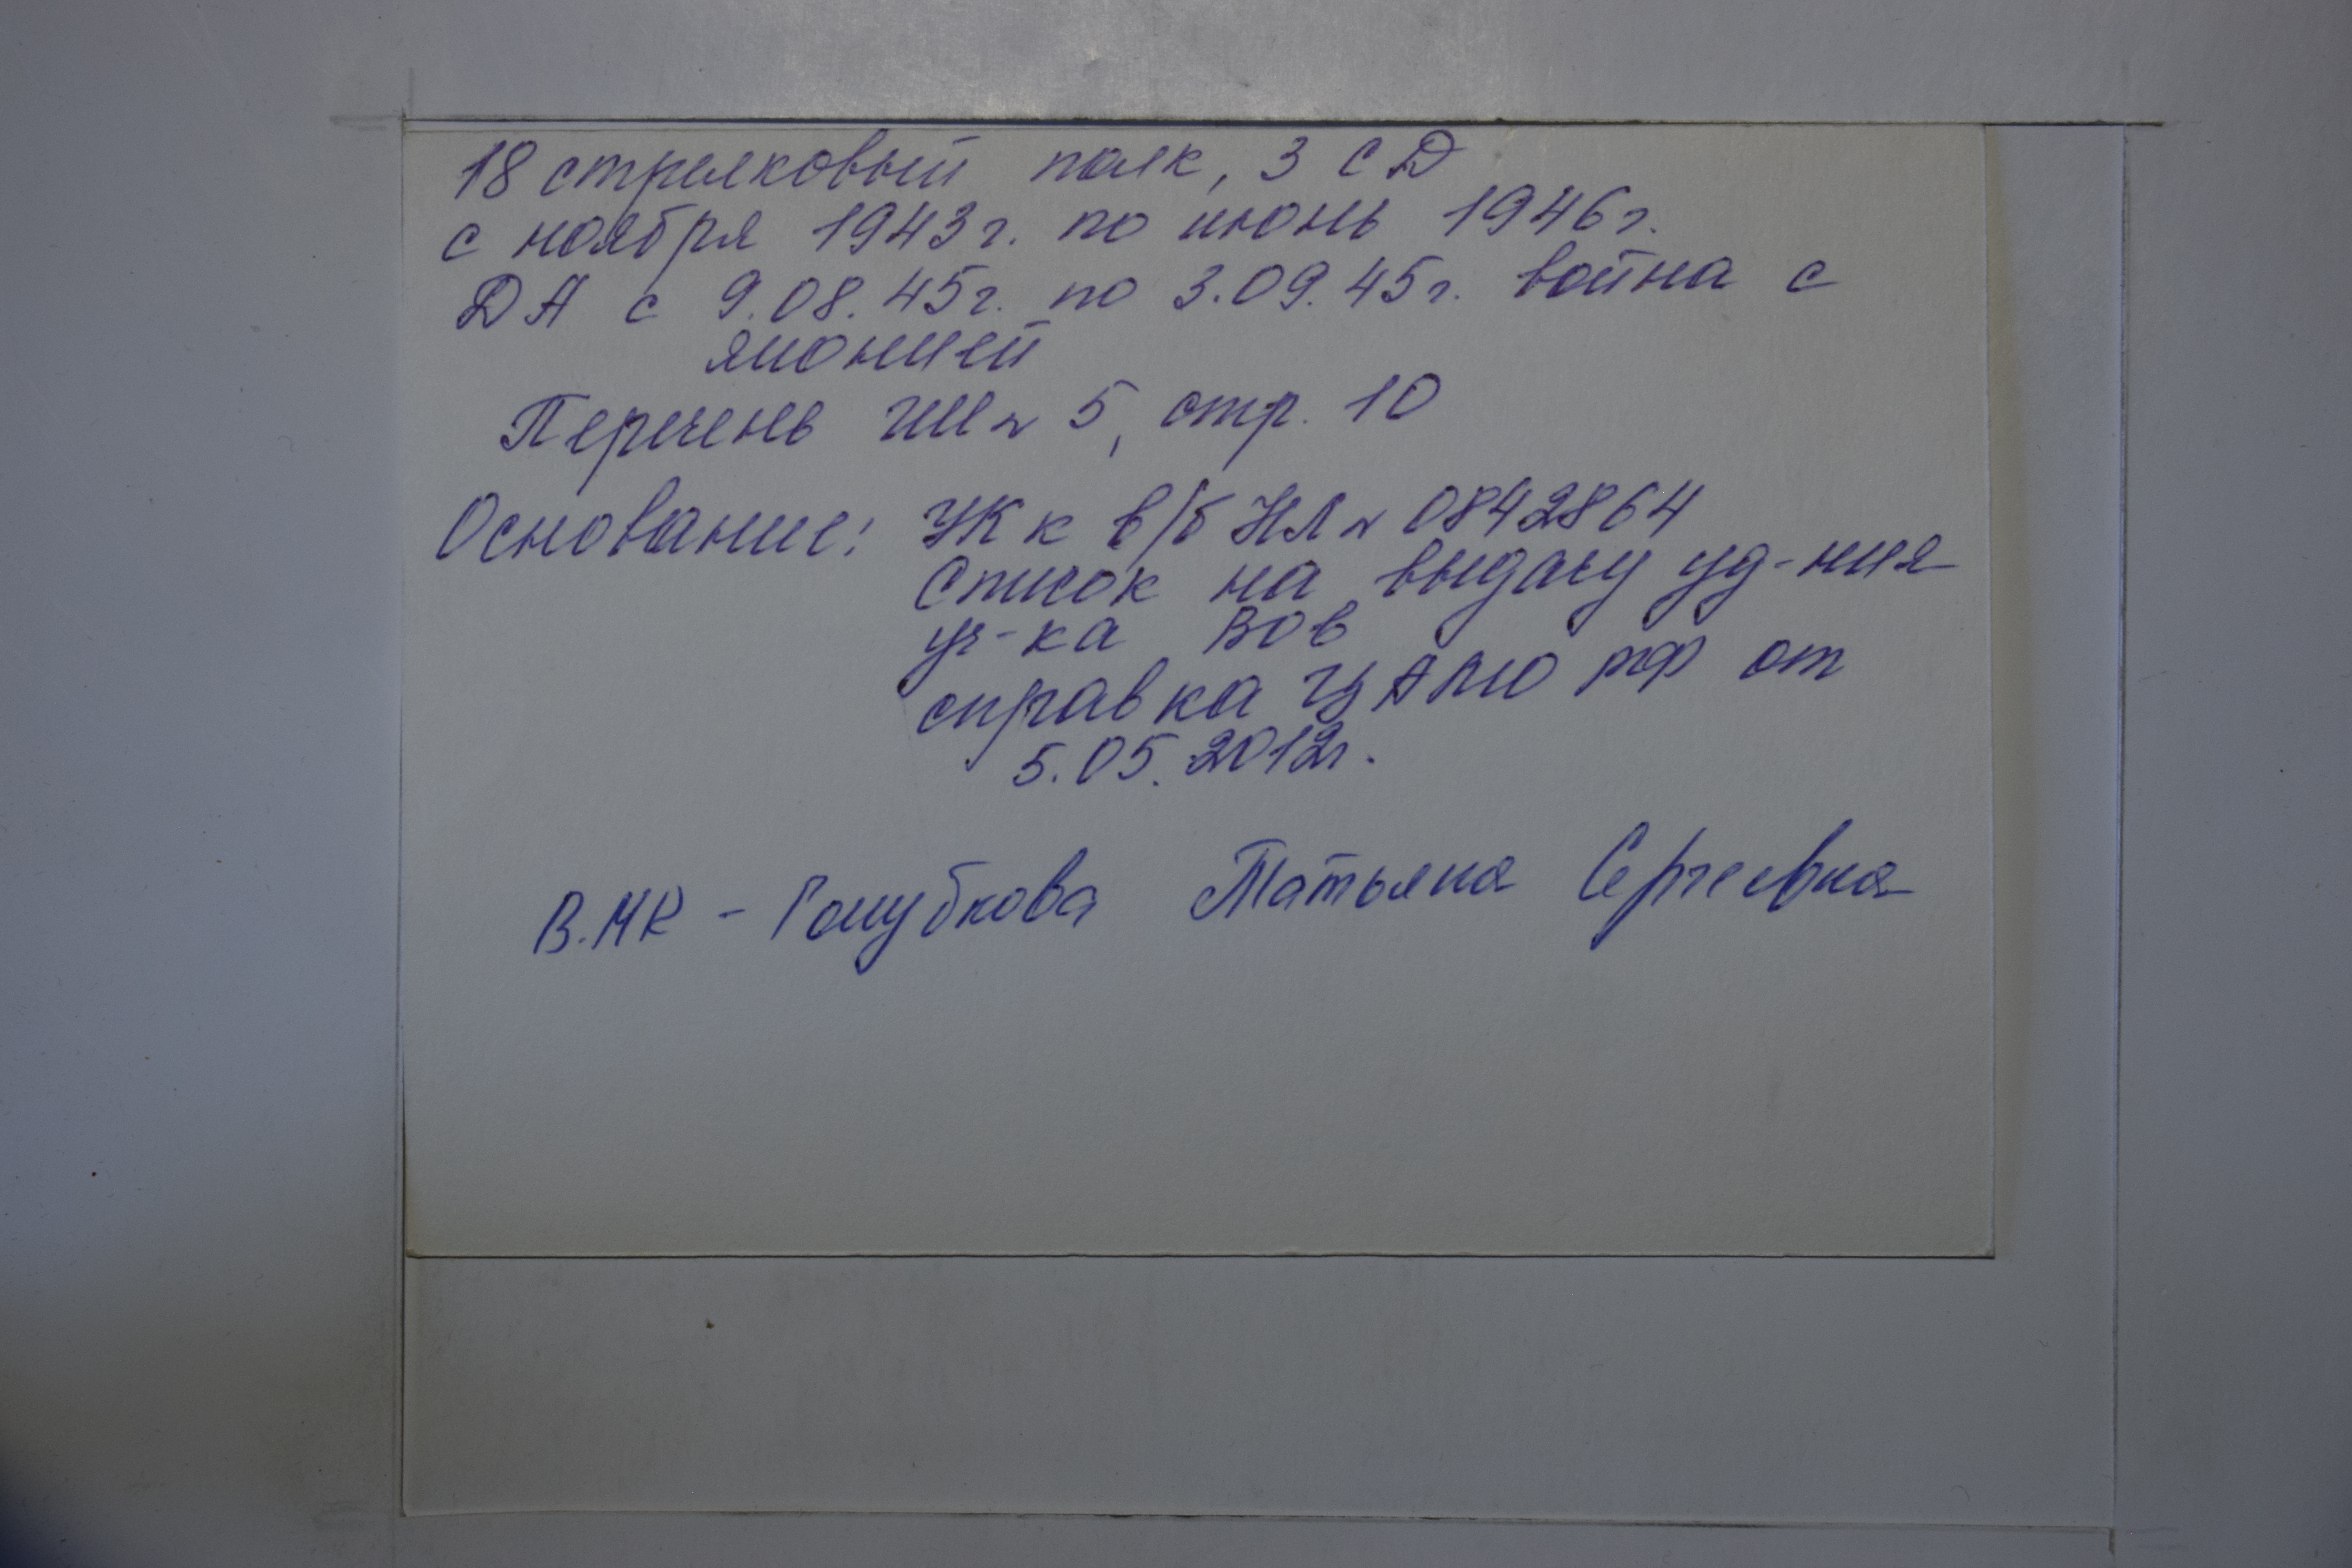 18 стрелковый полк, 3 СД
с ноября 1943г. по июнь 1946г.
ДА с 9.08.45г. по 3.09.45г. война с
японией
Перечень ГШ № 5, стр. 10
Основание: УК к в/б НЛ № 0842864
Список на выдачу уд-ния
уч-ка ВОВ
справка ЦАМО РФ от
5.05.2012г.
В.МК - Голубкова Татьяна Сергеевна